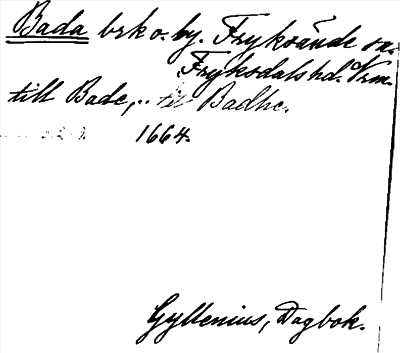 Bada brk o. by. Fryksände sn.
Fryksdals hd. Vrm.
till Bade, .. till Badhe.
1664.
Gyllenius, Dagbok.